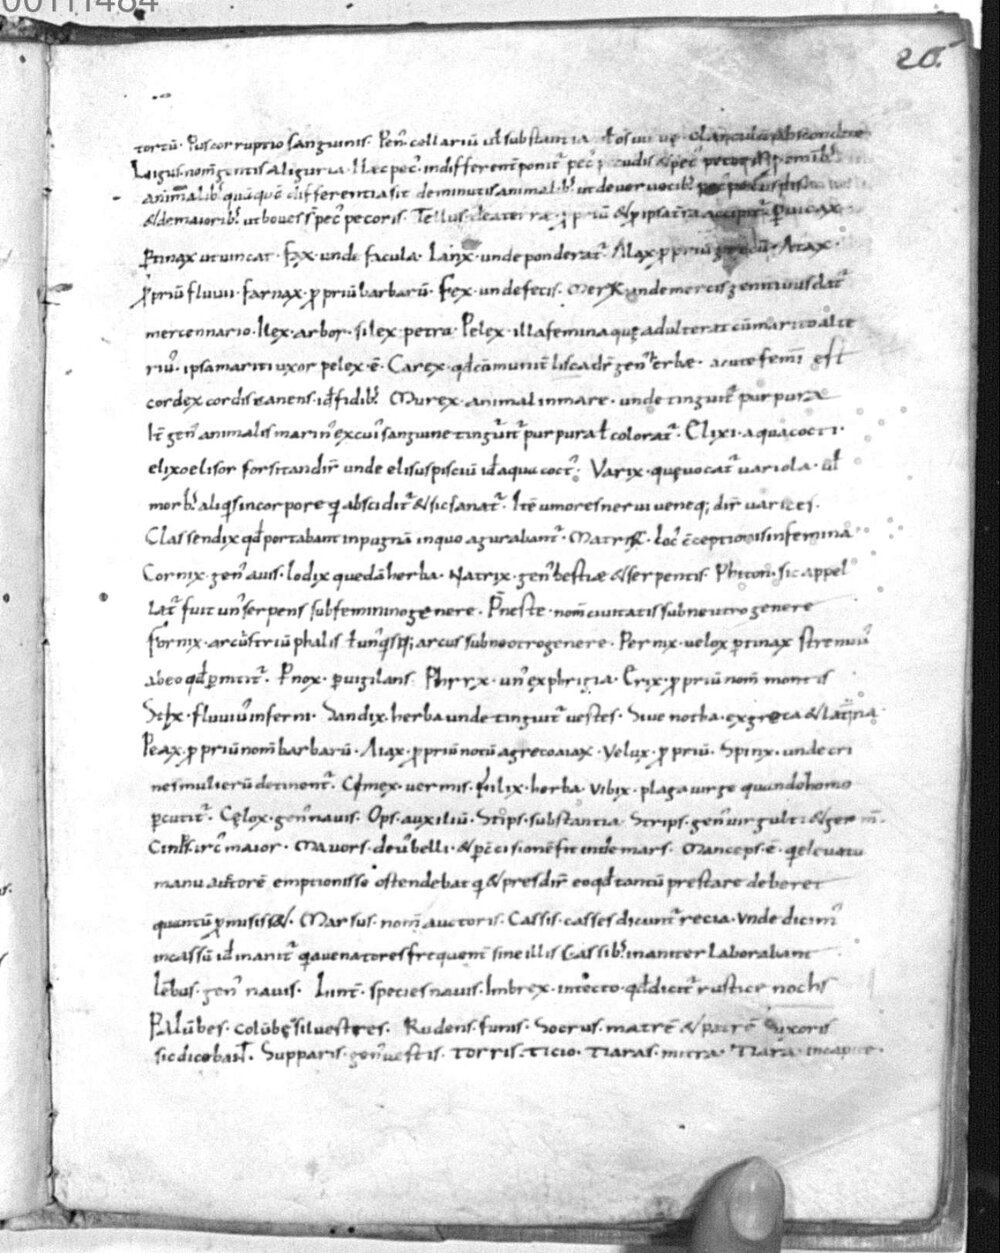 00111484
20.
tortū · Pus corruptio sanguinis · Peñ collariū ul substantia
Ligus · nom̄ gentis a liguria · Haec pec' indifferent̄ ponit᷑ pec'
animalib; quāquā differentia sit de minutis animalib; ut dever vocib;
& de maiorib; ut boves pec' pecoris · Tellus · dea terrae · ꝓpriū & p ipsa t̄ra accipit᷑ · Puicax
Ptinax ut vincat · fax · unde facula · Lanx · unde ponderat᷑ · Alax ꝓpriū grecū · Atax ·
ꝓpriū fluvii · farnax · ꝓpriū barbarū · Fex · unde fecis · Merx · unde mercis genitivus dat᷑
mercennario · Ilex · arbor · silex · petra · Pelex · illa femina quę adulterat cū marito alte
riꝰ · ipsa mariti uxor pelex · ē · Carex · qđ cōmunit̄ lisca dr̄ genꝰ erbae · acute femī est
cordex cordis canens · iđ fidib; Murex · animal in mare · unde tinguit᷑ purpura
It̄ genꝰ animalis marinꝰ ex cuiꝰ sanguine tinguit᷑ purpura ł colorat᷑ · Elixi · aqua cocti ·
elixo elisor forsitan dr̄ unde elisus pisciū iđ aqua coctꝰ · Varix · quę vocat᷑ variola · ul
morbꝰ aliqs in corpore q abscidit᷑ & sic sanat᷑ · Itē umores nervi veneq; dr̄ varices ·
Classendix qđ portabant in pugnā in quo agurabant᷑ · Matrix · locꝰ cceptionis in femina
Cornix · genꝰ avis · lodix quedā herba · Natrix · genꝰ bestiae & serpentis · Phiton · sic appel
lat᷑ fuit unꝰ serpens sub feminino genere · P̄neste · nom̄ civitatis sub neutro genere
fornix · arcus triūphalis ł unqsq; arcus sub neotro genere · Pernix · velox ptinax strenuuꝰ
ab eo qđ pnitit᷑ · Pnox · pvigilans · Phrix · unꝰ ex phrigia · Erix · ꝓpriū nom̄ montis
Stix · fluviꝰ inferni · Sandix · herba unde tinguit᷑ vestes · Sive notha · ex greca & latina ·
Peax · ꝓpriū nom̄ barbarū · Aiax · ꝓpriū notū a greco aiax · Velux · ꝓpriū · Spinx · unde cri
nes mulierū detinent᷑ · Cimex · vermis · filix · herba · Vibix · plaga virge quando homo
pcutit᷑ · Celox · genꝰ navis · Ops · auxiliū · Stips · substantia · Strips · genꝰ virgulti · & germ̄ ·
maior · Mavors · deus belli · & p ē cisionē fit inde mars · Manceps · ē · q elevata
manu auctorē emptionis se ostendebat q & pres dr̄ eo qđ tantū prestare deberet
quantū ꝓmisiss& · Marsus · nom̄ auctoris · Cassis · casses dicunt᷑ recia · Unde dicimꝰ
in cassū iđ inanit᷑ q a venatores frequent̄ sine illis cassib; inaniter laborabant
Lēbus · genꝰ navis · Lint̄ · species navis · Imbrex · intecto · qđ dicit᷑ rustice nochs
Palūbes · colūbę silvestres · Rudens · funis · Socrus · matrē & patrē uxoris
sic dicebant · Supparis · genꝰ vestis · Torris · ticio · Tiaras · mitra · Tiara · in capite ·